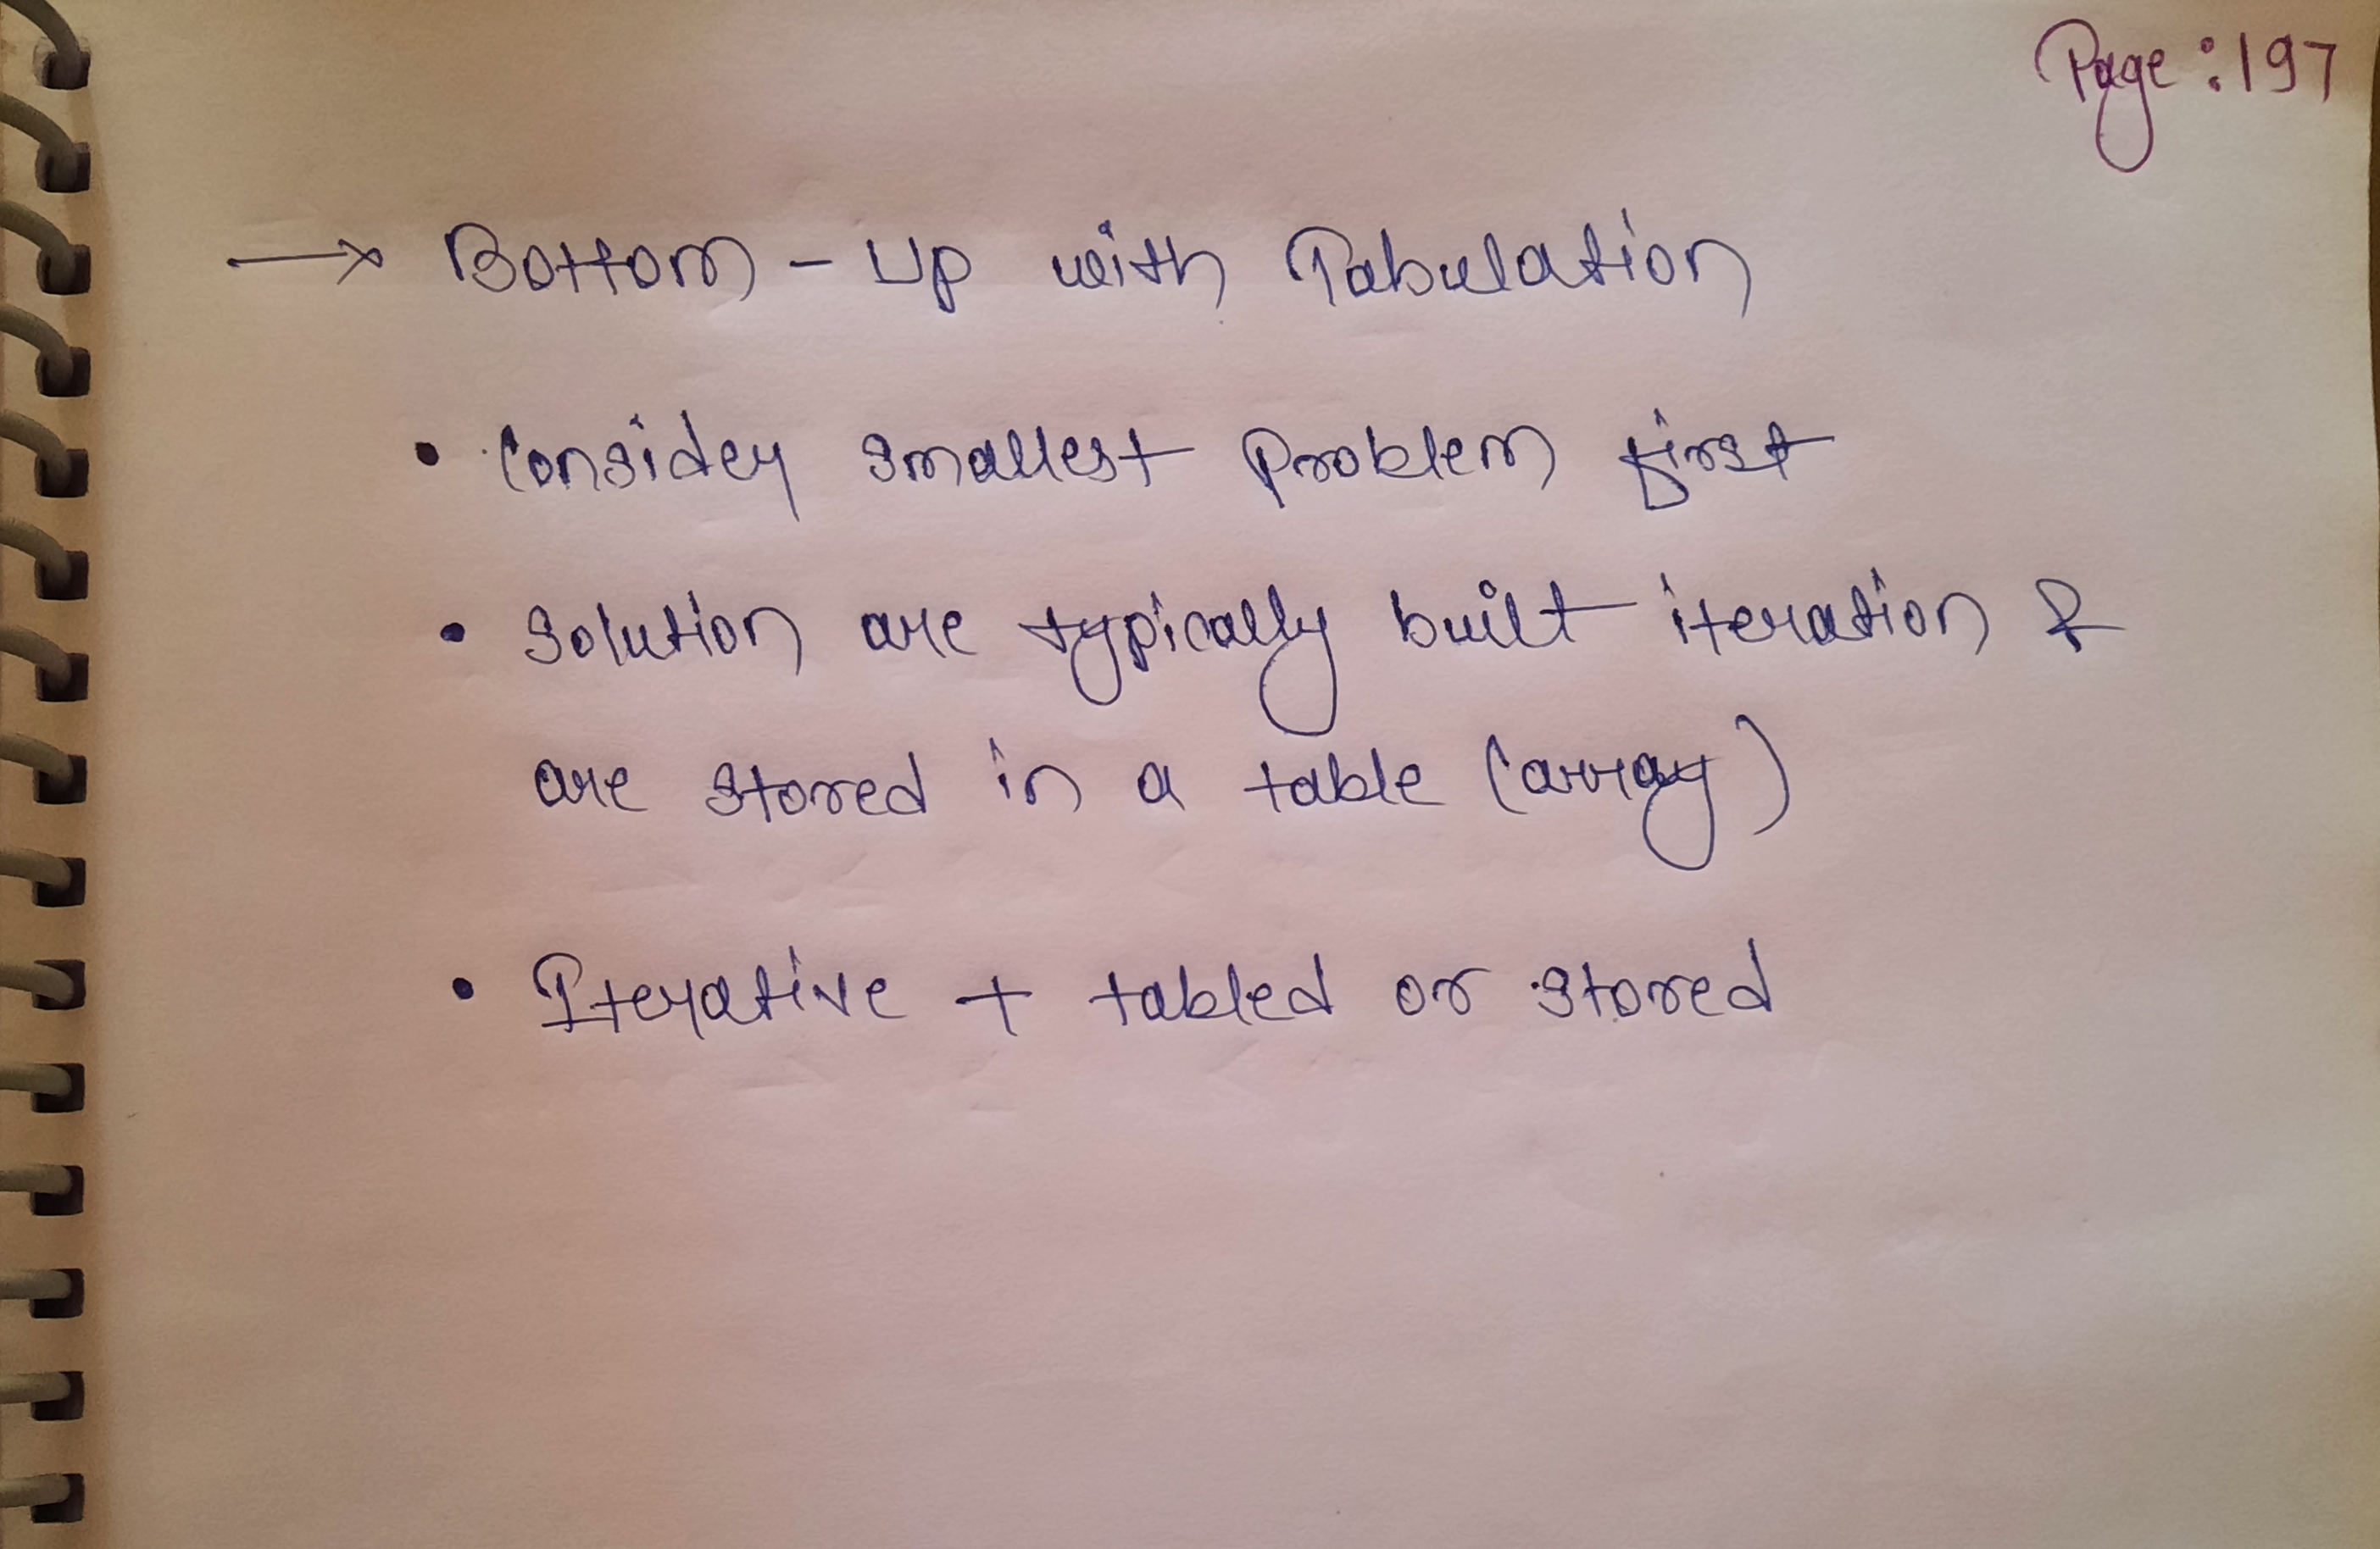 Page : 197
→ Bottom - Up with Tabulation
• Consider smallest Problem first
• Solution are typically built iteration &
are stored in a table (array)
• Iterative + tabled or stored